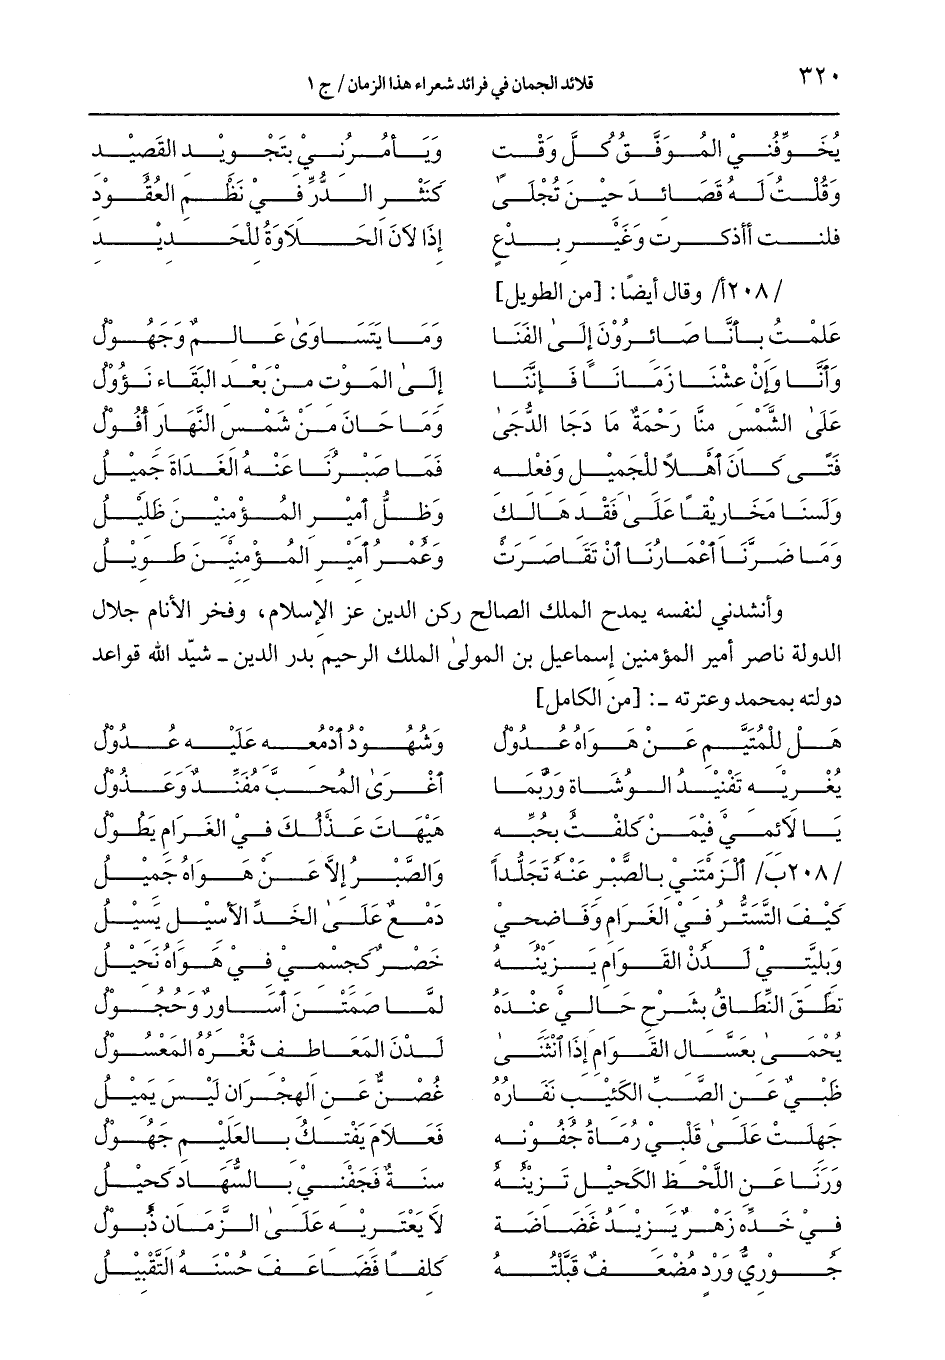 ٣٢٠ قلائد الجمان في فرائد شعراء هذا الزمان / ج ١
يُخَوِّفُنِي المُوَفَّقُ كُلَّ وَقْتٍ وَيَأْمُرُنِي بِتَجْوِيدِ القَصِيدِ
وَقُلْتُ لَهُ قَصَائِدَ حِيْنَ تُجْلَى كَنَثْرِ الدُّرِّ فِيْ نَظْمِ العُقُوْدِ
فلنت أأذكرت وَغَيْرِ بِدْعٍ إِذَا لاَنَ الحَلاَوَةُ لِلْحَدِيْدِ
/٢٠٨أ/ وقال أيضًا: [من الطويل]
عَلِمْتُ بِأَنَّا صَائِرُوْنَ إِلَى الفَنَا وَمَا يَتَسَاوَى عَالِمٌ وَجَهُوْلُ
وَأَنَّا وَإِنْ عِشْنَا زَمَانًا فَإِنَّنَا إِلَى المَوْتِ مِنْ بَعْدِ البَقَاءِ نَؤُوْلُ
عَلَى الشَّمْسِ مِنَّا رَحْمَةٌ مَا دَجَا الدُّجَى وَمَا حَانَ مِنْ شَمْسِ النَّهَارِ أُفُوْلُ
فَتًى كَانَ أَهْلاً لِلْجَمِيْلِ وَفِعْلِهِ فَمَا صَبْرُنَا عَنْهُ الغَدَاةَ جَمِيْلُ
وَلَسْنَا مَخَارِيقًا عَلَى فَقْدِ هَالِكٍ وَظِلُّ أَمِيْرِ المُؤْمِنِيْنَ ظَلِيْلُ
وَمَا ضَرَّنَا أَعْمَارُنَا أَنْ تَقَاصَرَتْ وَعُمْرُ أَمِيْرِ المُؤْمِنِيْنَ طَوِيْلُ
وأنشدني لنفسه يمدح الملك الصالح ركن الدين عز الإسلام، وفخر الأنام جلال
الدولة ناصر أمير المؤمنين إسماعيل بن المولى الملك الرحيم بدر الدين ـ شيّد الله قواعد
دولته بمحمد وعترته ـ: [من الكامل]
هَلْ لِلْمُتَيَّمِ عَنْ هَوَاهُ عُدُوْلُ وَشُهُوْدُ أَدْمُعِهِ عَلَيْهِ عُدُوْلُ
يُغْرِيْهِ تَفْنِيْدُ الوُشَاةِ وَرُبَّمَا أَغْرَى المُحِبَّ مُفَنِّدٌ وَعَذُوْلُ
يَا لاَئِمِيْ فِيْمَنْ كَلِفْتُ بِحُبِّهِ هَيْهَاتَ عَذْلُكَ فِيْ الغَرَامِ يَطُوْلُ
/٢٠٨ب/ أَلْزَمْتَنِي بِالصَّبْرِ عَنْهُ تَجَلُّدًا وَالصَّبْرُ إِلاَّ عَنْ هَوَاهُ جَمِيْلُ
كَيْفَ التَّسَتُّرُ فِيْ الغَرَامِ وَفَاضِحِيْ دَمْعٌ عَلَى الخَدِّ الأَسِيْلِ يَسِيْلُ
وَبَلِيَّتِيْ لَدْنُ القَوَامِ يَزِيْنُهُ خَصْرٌ كَجِسْمِي فِي هَوَاهُ نَحِيْلُ
نَطَقَ النِّطَاقُ بِشَرْحِ حَالِيْ عِنْدَهُ لَمَّا صَمَتْنَ أَسَاوِرٌ وَحُجُوْلُ
يَحْمِيْ بِعَسَّالِ القَوَامِ إِذَا انْثَنَى لَدْنُ المَعَاطِفِ ثَغْرُهُ المَعْسُوْلُ
ظَبْيٌ عَنِ الصَّبِّ الكَئِيْبِ نِفَارُهُ غُصْنٌ عَنِ الهِجْرَانِ لَيْسَ يَمِيْلُ
جَهِلَتْ عَلَى قَلْبِيْ رُمَاةُ جُفُوْنِهِ فَعَلاَمَ يَفْتِكُ بِالعَلِيْمِ جَهُوْلُ
وَرَنَا عَنِ اللَّحْظِ الكَحِيْلِ تَزِيْنُهُ سِنَةٌ فَجَفْنِيْ بِالسُّهَادِ كَحِيْلُ
فِيْ خَدِّهِ زَهْرٌ يَزِيْدُ غَضَاضَةً لاَ يَعْتَرِيْهِ عَلَى الزَّمَانِ ذُبُوْلُ
جُوْرِيُّ وَرْدٍ مُضْعَفٍ قَبَّلْتُهُ كَلِفًا فَضَاعَفَ حُسْنَهُ التَّقْبِيْلُ